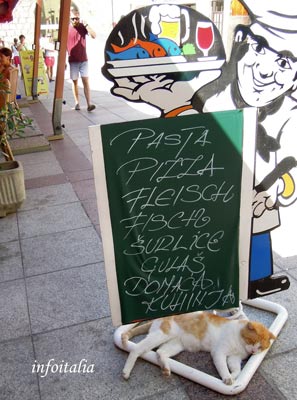 PASTA
PIZZA
FLEISCH
FISCH
ŠURLICE
GULAŠ
DOMAĆA
KUHINJA
infoitalia